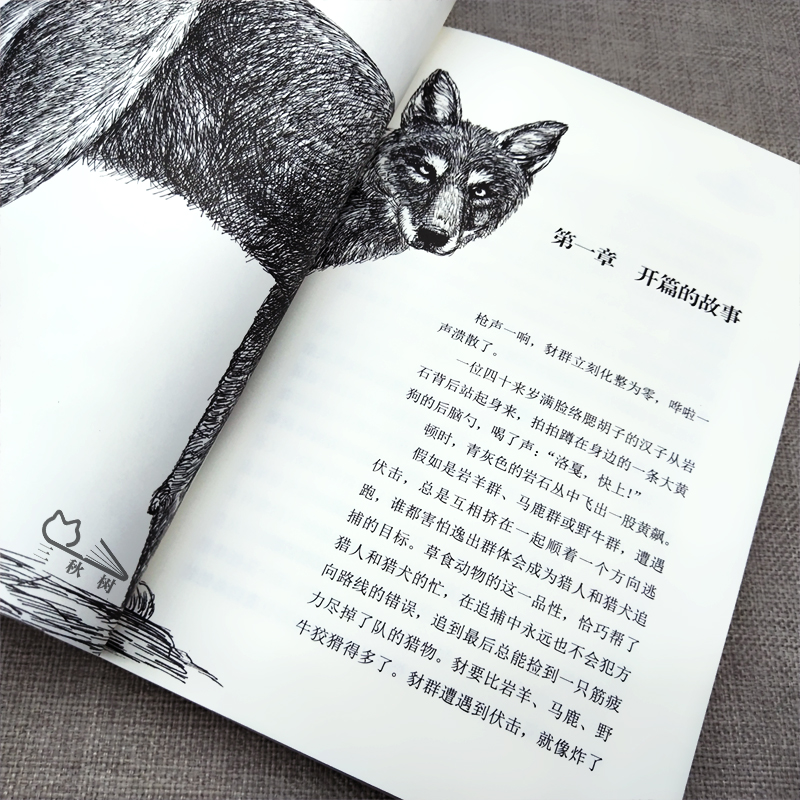 第一章 开篇的故事
枪声一响，豺群立刻化整为零，哗啦一
声溃散了。
一位四十来岁满脸络腮胡子的汉子从岩
石背后站起身来，拍拍蹲在身边的一条大黄
狗的后脑勺，喝了声：“洛戛，快上！”
顿时，青灰色的岩石丛中飞出一股黄飙。
假如是岩羊群、马鹿群或野牛群，遭遇
伏击，总是互相挤在一起顺着一个方向逃
跑，谁都害怕逸出群体会成为猎人和猎犬追
捕的目标。草食动物的这一品性，恰巧帮了
猎人和猎犬的忙，在追捕中永远也不会犯方
向路线的错误，追到最后总能捡到一只筋疲
力尽掉了队的猎物。豺要比岩羊、马鹿、野
牛狡猾得多了。豺群遭遇到伏击，就像炸了
三秋树